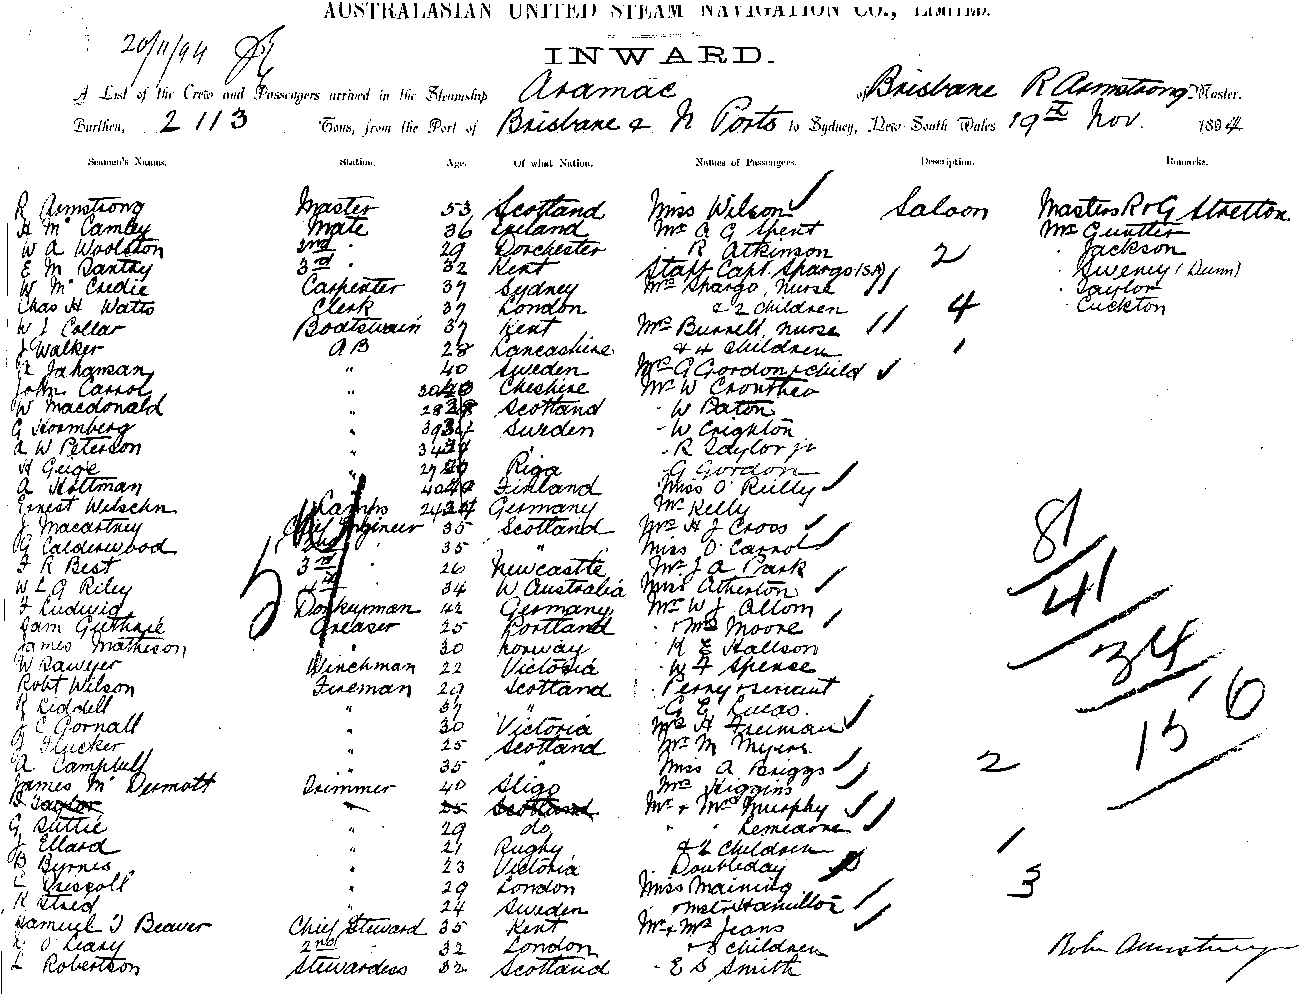 AUSTRALASIAN UNITED STEAM NAVIGATION CO., LIMITED.
20/11/94
INWARD.
A List of the Crew and Passengers arrived in the Steamship Aramac of Brisbane R Armstrong Master.
Burthen, 2113 Tons, from the Port of Brisbane & N Ports to Sydney, New South Wales 19th Nov. 1894
Seamen's Names. Station. Age. Of what Nation. Names of Passengers. Description. Remarks.
R Armstrong Master 53 Scotland Miss Wilson Saloon Masters R & G Stretton
H McCamley Mate 36 Ireland Mr A G Spent Mr Gunther
W A Woolston 2nd " 29 Dorchester " R Atkinson 2 " Jackson
E M Santry 3rd " 32 Kent Staff Capt Spargo (SA) " Sweney (Dunn)
W McCredie Carpenter 37 Sydney Mrs Spargo, Nurse " Taylor
Chas H Watts Clerk 37 London & 2 children 4 " Cuckton
W J Collar Boatswain 37 Kent Mrs Burnell, nurse
J Walker AB 28 Lancashire & 4 children 1
Johansan " 40 Sweden Mrs G Gordon & child
John Carrol " 30 Cheshire Mr W
W Macdonald " 28 Scotland " W Paton
G Hormberg " 39 Sweden " W Crighton
A W Peterson " 34 " " R Taylor jr
H Geige " 29 Riga " G Gordon
A Hottman " 40 Finland Miss O'Reilly
Ernest Wilschn Lamps 24 Germany Mr Kelly
J Macartney Chief Engineer 35 Scotland Mrs H J Cross
G Calderwood 2nd " 35 " Miss O'Carrol
F R Best 3rd " 26 Newcastle Mr J A Park
W L G Riley 4th " 34 W Australia Miss Atherton
F Ludwig Donkeyman 42 Germany Mr W J Allom
Sam Guthrie Greaser 25 Portland " & Mrs Moore
James Mathieson " 30 Norway " H E Hallson
W Sawyer Winchman 22 Victoria " W F Spense
Robt Wilson Fireman 29 Scotland " Perry & servant
R Liddell " 37 " " G E Lucas
J E Gornall " 30 Victoria Mrs H Freeman
J Flucker " 25 Scotland Mr M Myers
A Campbell " 35 " Miss A Briggs 2
James McDermott Trimmer 40 Sligo Mrs Higgins
Taylor " 25 Scotland Mr & Mrs Murphy
G Suttie " 29 do " "
J Ellard " 21 Rugby & 2 children 1
B Byrnes " 23 Victoria " Doubleday
L Driscoll " 29 London Miss Maining 3
K Stred " 24 Sweden " & Mstr Hamilton
Samuel T Beaver Chief Steward 35 Kent Mr & Mrs Jeans
O'Leary 2nd " 32 London & 3 children
L Robertson Stewardess 32 Scotland " E S Smith
51
81
41
34
156
Robt Armstrong